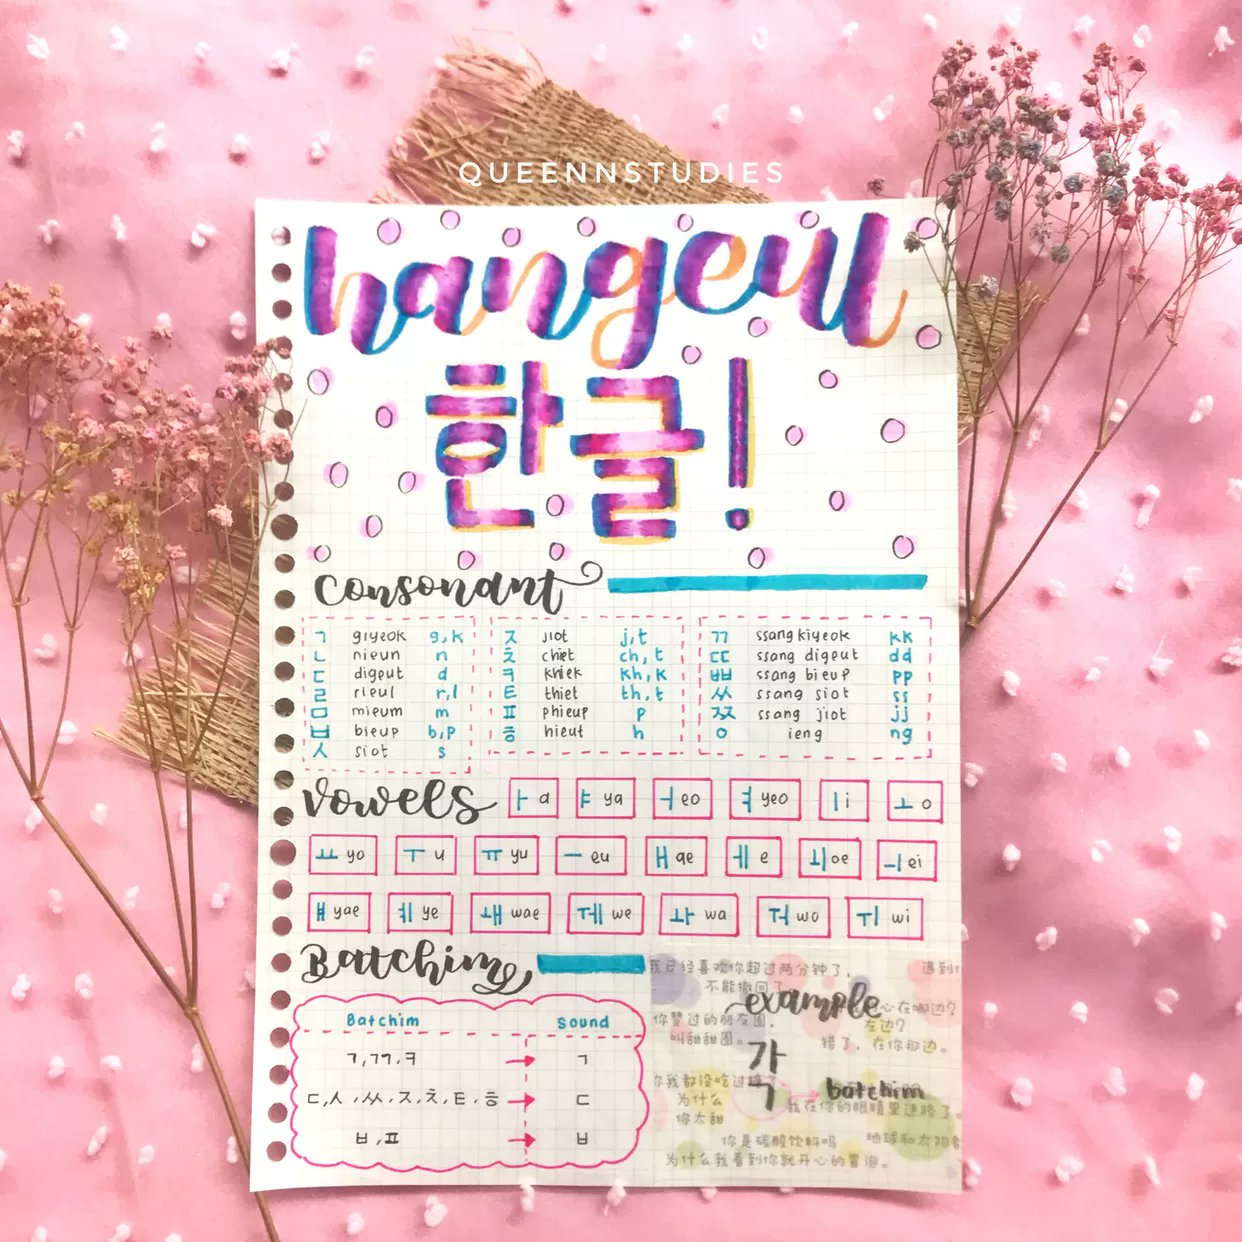 QUEENNSTUDIES
hangeul
한글!
Consonant
ㄱ giyeok g,k
ㄴ nieun n
ㄷ digeut d
ㄹ rieul r,l
ㅁ mieum m
ㅂ bieup b,p
ㅅ siot s
ㅈ jiot j,t
ㅊ chiet ch,t
ㅋ khiek kh,k
ㅌ thiet th,t
ㅍ phieup p
ㅎ hieut h
ㄲ ssang kiyeok kk
ㄸ ssang digeut dd
ㅃ ssang bieup pp
ㅆ ssang siot ss
ㅉ ssang jiot jj
ㅇ ieng ng
Vowels ㅏ a ㅑ ya ㅓ eo ㅕ yeo ㅣ i ㅗ o
ㅛ yo ㅜ u ㅠ yu ㅡ eu ㅐ ae ㅔ e ㅚ oe ㅢ ei
ㅒ yae ㅖ ye ㅙ wae ㅞ we ㅘ wa ㅝ wo ㅟ wi
Batchim
Batchim Sound
ㄱ,ㄲ,ㅋ → ㄱ
ㄷ,ㅅ,ㅆ,ㅈ,ㅊ,ㅌ,ㅎ → ㄷ
ㅂ,ㅍ → ㅂ
我已经喜欢你超过两分钟了, 遇到
不能撤回了
example 心在哪边?
你赞过的朋友圈, 左边?
叫甜甜圈。 错了, 在你那边。
각
你我都没吃过糖
batchim
为什么 我在你的眼睛里迷路了。
你太甜
你是碳酸饮料吗 地球和太阳
为什么我看到你就开心的冒泡。